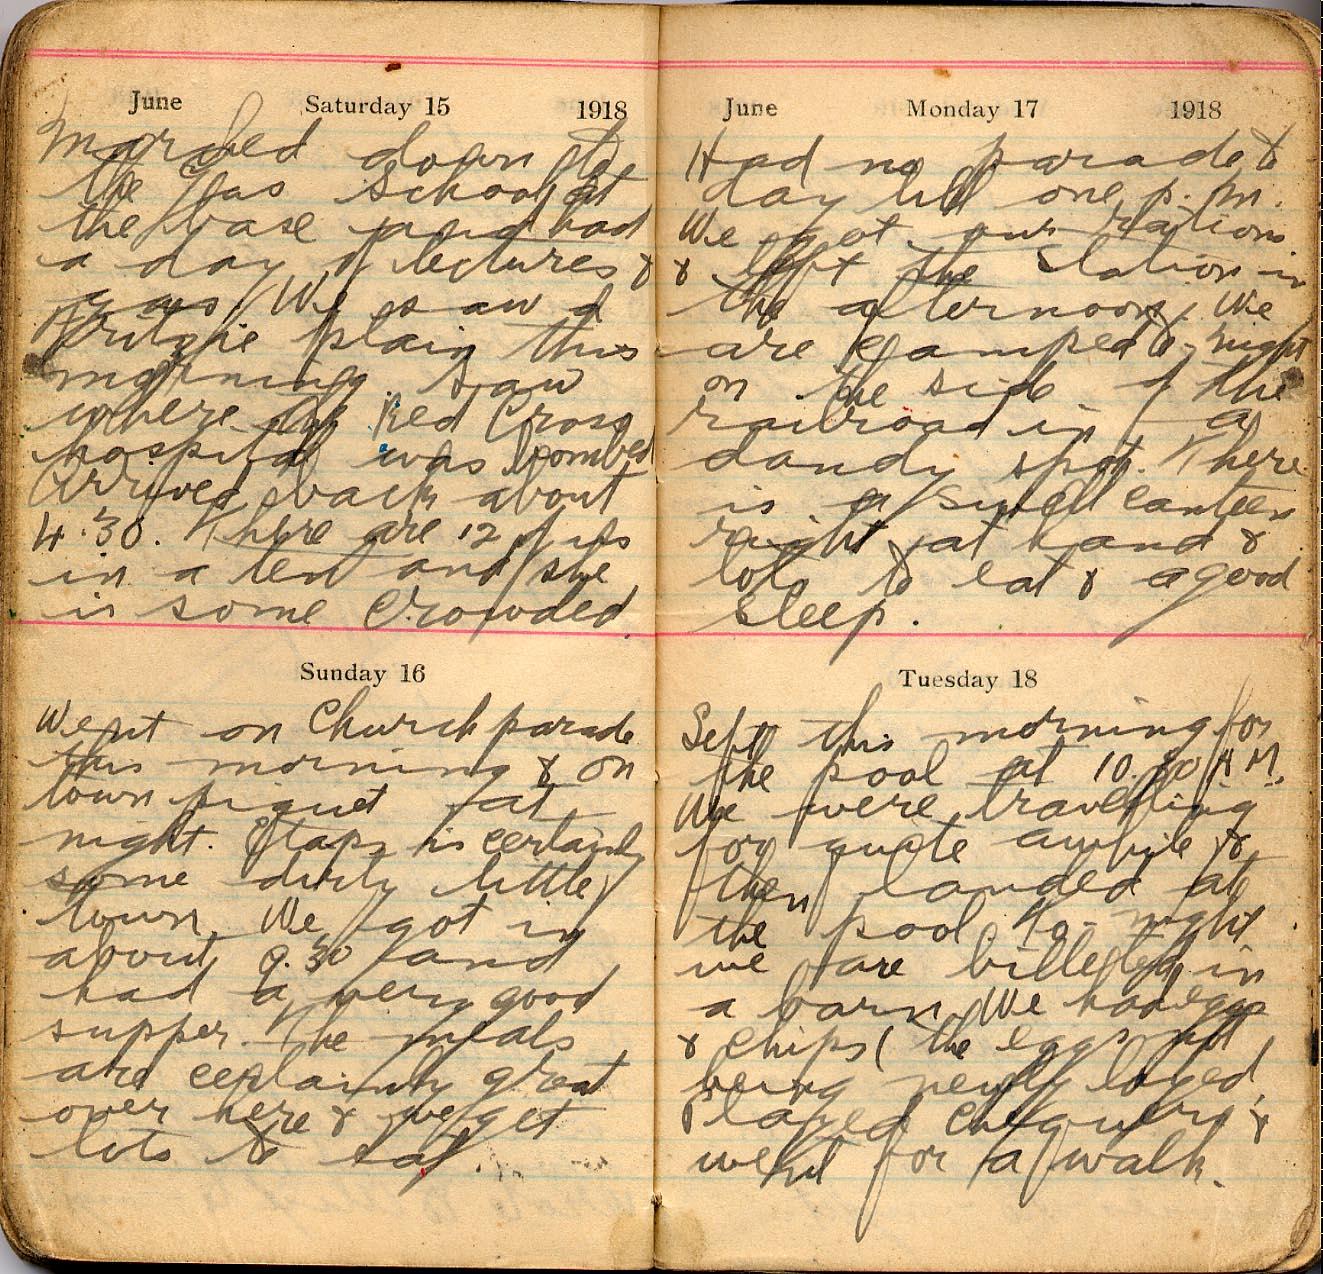 June Saturday 15 1918
Marched down to
the Gas School at
the base and had
a day of lectures &
gas. We saw a
Britqie plain this
morning. Saw
where the Red Cross
hospital was bombed
Arrived back about
4.30. There are 12 of us
in a tent and she
is some crowded.
Sunday 16
Went on Church parade
this morning & on
town piquet at
night. Etaps is certainly
some dirty little
town. We got in
about 9.30 and
had a very good
supper. The meals
are certainly great
over here & we get
lots to eat.
June Monday 17 1918
Had no parade to
day till one p.m.
We got our rations
& left the station in
the afternoon. We
are camped to-night
on the side of the
railroad in a
dandy spot. There
is a small canteen
right at hand &
lots to eat & a good
sleep.
Tuesday 18
Left this morning for
the pool at 10.30 A M.
We were travelling
for quite awhile &
then landed at
the pool to-night
we are billeted in
a barn. We had eggs
& chips (the eggs not
being newly layed,
Played chequers &
went for a walk.